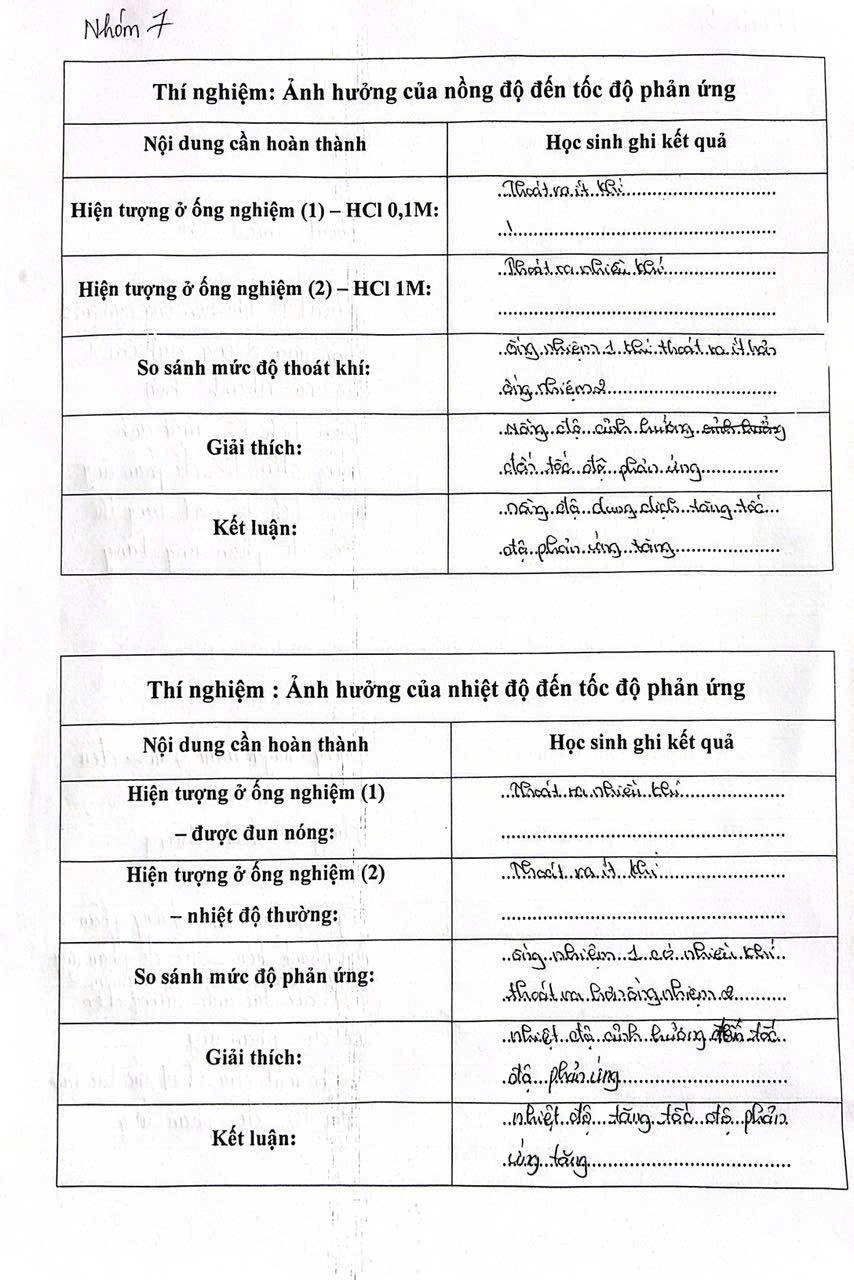 Nhóm 7
Thí nghiệm: Ảnh hưởng của nồng độ đến tốc độ phản ứng
Nội dung cần hoàn thành
Học sinh ghi kết quả
Hiện tượng ở ống nghiệm (1) – HCl 0,1M:
Thoát ra ít khí
Hiện tượng ở ống nghiệm (2) – HCl 1M:
Thoát ra nhiều khí
So sánh mức độ thoát khí:
ống nhiệm 1 khí thoát ra ít hơn
ống nhiệm 2
Giải thích:
Nồng độ ảnh hưởng ảnh hưởng
đến tốc độ phản ứng
Kết luận:
nồng độ dung dịch tăng tốc
độ phản ứng tăng
Thí nghiệm : Ảnh hưởng của nhiệt độ đến tốc độ phản ứng
Nội dung cần hoàn thành
Học sinh ghi kết quả
Hiện tượng ở ống nghiệm (1)
– được đun nóng:
Thoát ra nhiều khí
Hiện tượng ở ống nghiệm (2)
– nhiệt độ thường:
Thoát ra ít khí
So sánh mức độ phản ứng:
ống nhiệm 1 có nhiều khí
thoát ra hơn ống nhiệm 2
Giải thích:
nhiệt độ ảnh hưởng đến tốc
độ phản ứng
Kết luận:
nhiệt độ tăng tốc độ phản
ứng tăng